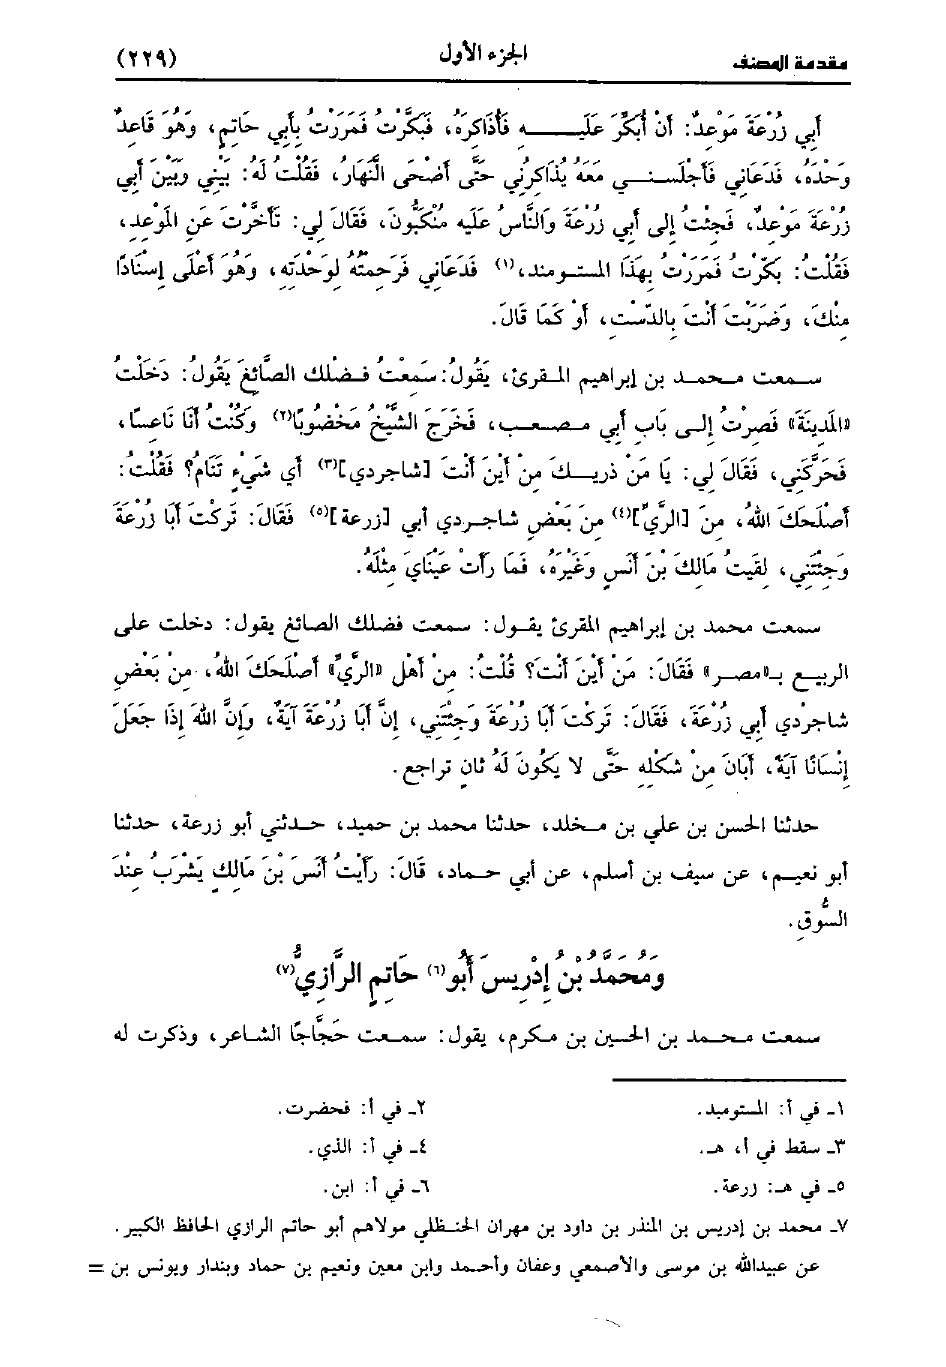 مقدمة المصنف
الجزء الأول
(٢٢٩)
أبي زُرْعَةَ مَوْعِدٌ: أَنْ أُبَكِّرَ عَلَيْهِ فَأُذَاكِرَهُ، فَبَكَّرْتُ فَمَرَرْتُ بِأَبِي حَاتِمٍ، وَهُوَ قَاعِدٌ
وَحْدَهُ، فَدَعَانِي فَأَجْلَسَنِي مَعَهُ يُذَاكِرُنِي حَتَّى أَضْحَى النَّهَارُ، فَقُلْتُ لَهُ: بَيْنِي وَبَيْنَ أَبِي
زُرْعَةَ مَوْعِدٌ، فَجِئْتُ إِلَى أَبِي زُرْعَةَ وَالنَّاسُ عَلَيهِ مُنْكَبُّونَ، فَقَالَ لِي: تَأَخَّرْتَ عَنِ الْمَوْعِدِ،
فَقُلْتُ: بَكَّرْتُ فَمَرَرْتُ بِهَذَا المستومند،(١) فَدَعَانِي فَرَحِمْتُهُ لِوَحْدَتِهِ، وَهُوَ أَعْلَى إِسْنَادًا
مِنْكَ، وَضَرَبْتَ أَنْتَ بِالدَّسْتِ، أَوْ كَمَا قَالَ.
سَمِعت محمد بن إبراهيم المقرئ، يَقُولُ: سَمِعت فضلك الصائغَ يَقُولُ: دَخَلْتُ
«الْمَدِينَةَ» فَصِرْتُ إِلى بَابِ أَبِي مصعب، فَخَرَجَ الشَّيْخُ مَخْضُوبًا(٢) وَكُنْتُ أَنَا نَاعِسًا،
فَحَرَّكَنِي، فَقَالَ لِي: يَا مَنْ ذريك مِنْ أَيْنَ أَنْتَ [شاجردي](٣) أَي شَيْءٍ تَنَامُ؟ فَقُلْتُ:
أَصْلَحَكَ اللهُ، مِنَ [الرَّيِّ](٤) مِنَ بَعْضِ شاجردي أبي [زرعة](٥) فَقَالَ: تَرَكْتَ أَبَا زُرْعَةَ
وَجِئْتَنِي، لَقِيتُ مَالِكَ بْنَ أَنَسٍ وَغَيْرَهُ، فَمَا رَأَتْ عَيْنَايَ مِثْلَهُ.
سمعت محمد بن إبراهيم المقرئ يقول: سمعت فضلك الصائغ يقول: دخلت على
الربيع بـ«مصر» فَقَالَ: مَنْ أَيْنَ أَنْتَ؟ قُلْتُ: مِنْ أَهْلِ «الرَّيِّ» أَصْلَحَكَ اللهُ، مِنْ بَعْضِ
شاجرْدي أَبِي زُرْعَةَ، فَقَالَ: تَرَكْتَ أَبَا زُرْعَةَ وَجِئْتَنِي، إِنَّ أَبَا زُرْعَةَ آيَةٌ، وَإِنَّ اللهَ إِذَا جَعَلَ
إِنْسَانًا آيَةً، أَبَانَ مِنْ شَكْلِهِ حَتَّى لَا يَكُونَ لَهُ ثَانٍ تراجع.
حدثنا الحسن بن علي بن مخلد، حدثنا محمد بن حميد، حدثني أبو زرعة، حدثنا
أبو نعيم، عن سيف بن أسلم، عن أبي حماد، قَالَ: رَأَيْتُ أَنَسَ بْنَ مَالِكٍ يَشْرَبُ عِنْدَ
السُّوقِ.
وَمُحَمَّدُ بْنُ إِدْرِيسَ أَبُو(٦) حَاتِمٍ الرَّازِيُّ(٧)
سمعت محمد بن الحسين بن مكرم، يقول: سمعت حَجَّاجًا الشاعر، وذكرت له
١ـ في أ: المستوميد.
٢ـ في أ: فحضرت.
٣ـ سقط في أ، هـ.
٤ـ في أ: الذي.
٥ـ في هـ: زرعة.
٦ـ في أ: ابن.
٧ـ محمد بن إدريس بن المنذر بن داود بن مهران الحنظلي مولاهم أبو حاتم الرازي الحافظ الكبير.
عن عبيدالله بن موسى والأصمعي وعفان وأحمد وابن معين ونعيم بن حماد وبندار ويونس بن =